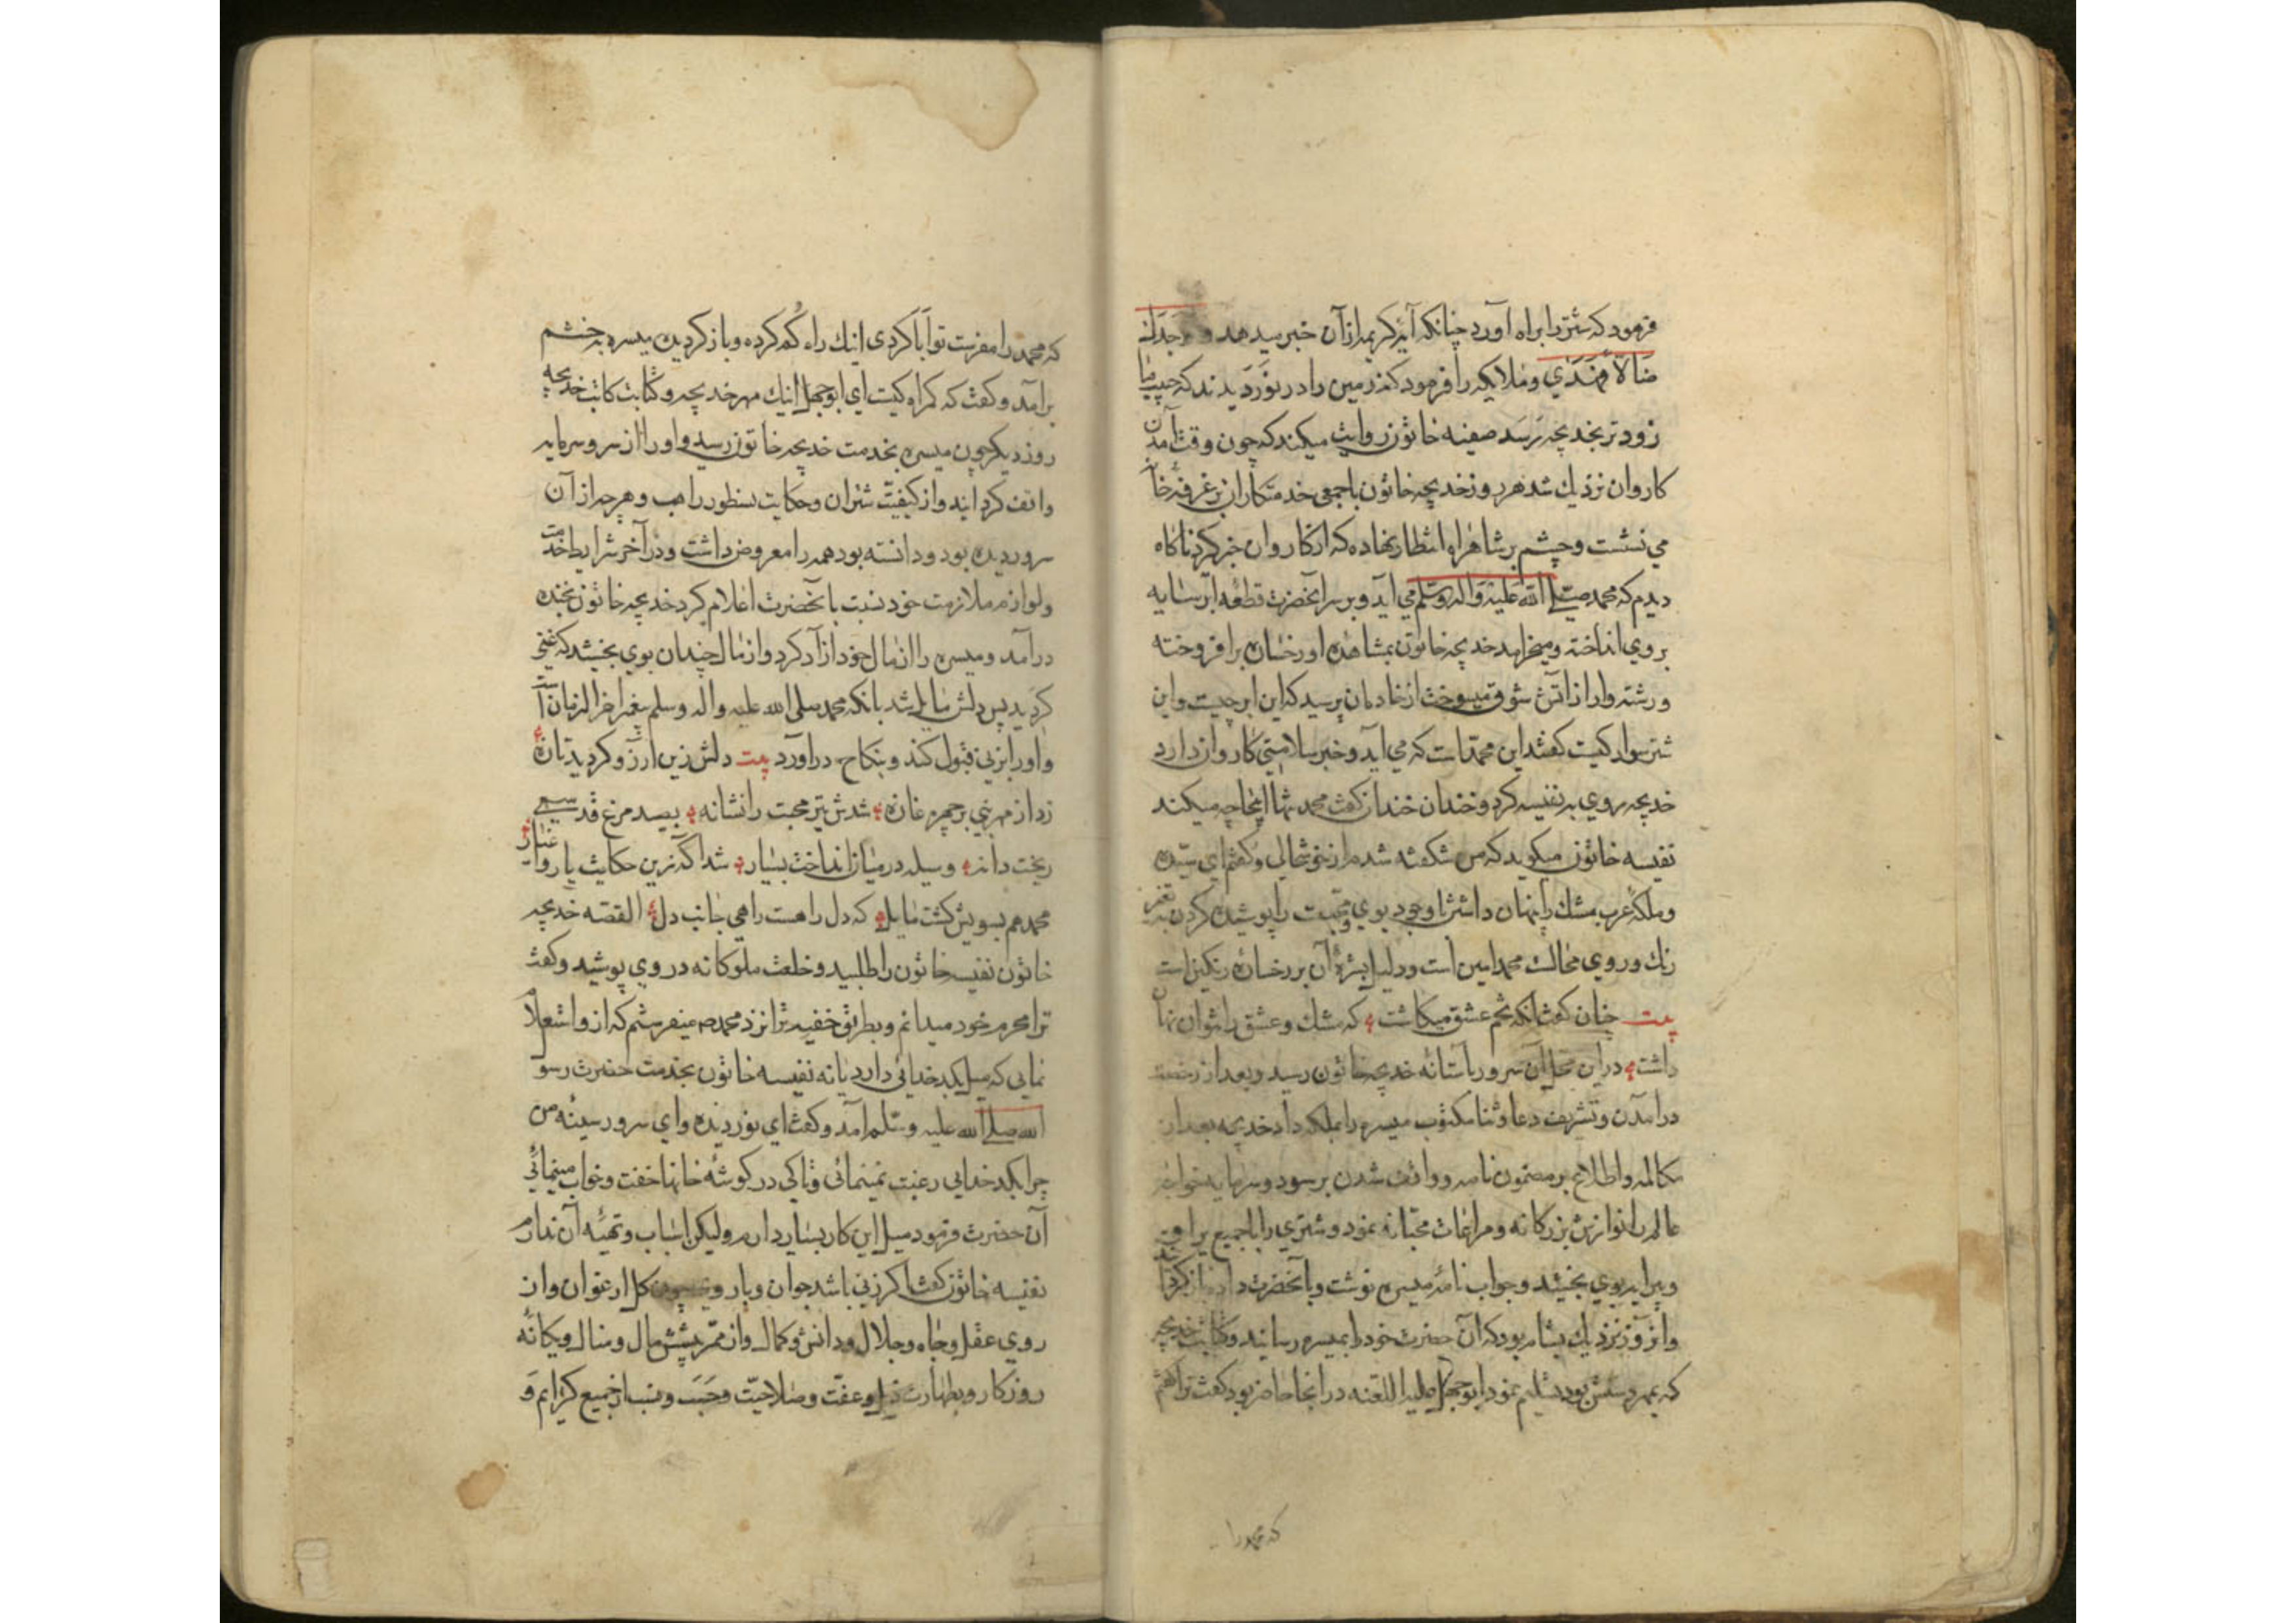 فرمود که شتر را براه آورد چنانکه آیهٔ کریمه از آن خبر میدهد و وجدک
ضالا فهدی و ملایکه را فرمود که زمین را در نوردیدند که حبیب ما
زودتر بخدیجه برسد صفیه خاتون روایت میکند که چون وقت آمدن
کاروان نزدیک شد هر روز خدیجه خاتون با جمعی خدمتکاران بر غرفهٔ خانه
می نشست و چشم بر شاهراه انتظار نهاده که از کاروان خبر گیرد ناکاه
دیدم که محمد صلی الله علیه و اله وسلم می آید و بر سر آنحضرت قطعه ابر سایه
بروی انداخته و میخرامد خدیجه خاتون بمشاهده او رخساره برافروخته
و رشته وار از آتش شوق میسوخت از خادمان پرسید که این ابر چیست و این
شتر سوار کیست کفتند این محمد است که می آید و خبر سلامتی کاروان دارد
خدیجه روی به نفیسه کرد و خندان خندان کفت محمد تنها اینجا چه میکند
نفیسه خاتون میکوید که من شکفته شدم از خوشحالی و کفتم ای سیده
و ملکه عرب مشک را پنهان داشتن با وجود بوی و محبت را پوشیده کردن به تغیر
رنک و روی محالست محمد امین است و دلیل این آن بر رخساره رنکین است
بیت چنان کفت انکه تخم عشق میکاشت که مشک و عشق را نتوان نهان
داشت در این محل آن سرور باستانه خدیجه خاتون رسید و بعد از رخصت
درآمدن و تشریف دعا و ثنا مکتوب میسره را بملکه داد خدیجه بعد از
مکالمه و اطلاع بر مضمون نامه و واقف شدن بر سود و سرمایه خواجه
عالم را نوازش بزرکانه و مراعات محبانه نمود و شتری را با جمیع یراق
و پیرایه بوی بخشید و جواب نامه میسره نوشت و بآنحضرت داد باز کردانید
و آنروز نزدیک بشام بود که آن حضرت خود را بمیسره رسانید و کتابت خدیجه
که بمهر دستش بود تسلیم نمود ابوجهل علیه اللعنه در انجا حاضر بود کفت ترا کفتم
که محمد را
که محمد را مفرست تو ابا کردی اینک راه کم کرده و باز کردیده میسره بخشم
برآمد و کفت که کمراه کیست ای ابوجهل اینک مهر خدیجه و کتابت کاتب خدیجه
روز دیکر چون میسره بخدمت خدیجه خاتون رسید و او را از سر و سرمایه
واقف کردانید و از کیفیت شتران و حکایت نسطور راهب و هر چه از آن
سرور دیده بود و دانسته بود همه را معروض داشت و در آخر شرایط خدمت
و لوازم ملازمت خود نسبت بآنحضرت اعلام کرد خدیجه خاتون بخنده
درآمد و میسره را از مال خود آزاد کرد و از مال چندان بوی بخشید که غنی
کردید پس دلش مایل شد بانکه محمد صلی الله علیه و اله وسلم پیغمبر اخر الزمان است
و او را بزنی قبول کند و بنکاح درآورد بیت دلش زین آرزو کردید تازه
زد از مهر نبی بر چهره غازه شدش تیر محبت را نشانه بصد مرغ قدسی
ریخت دانه وسیله در میان انداخت بسیار شد آکه زین حکایت یار و اغیار
محمد هم بسویش کشت مایل که دل را هست راهی جانب دل القصه خدیجه
خاتون نفیسه خاتون را طلبید و خلعت ملوکانه در وی پوشید و کفت
ترا محرم خود میدانم و بطریق خفیه ترا نزد محمد میفرستم که از و استعلام
نمایی که میل بکدخدائی دارد یا نه نفیسه خاتون بخدمت حضرت رسول
الله صلی الله علیه وسلم آمد و کفت ای نور دیده و ای سرور سینه من
چرا بکدخدایی رغبت نمینمائی و تا کی در کوشه خانها خفت و خواب مینمائی
آن حضرت فرمود میل این کار بسیار دارم ولیکن اسباب و تهیه آن ندارم
نفیسه خاتون کفت اکر زنی باشد جوان و با روی چون کل ارغوان و از
روی عقل و جاه و جلال و دانش و کمال و از ممر مال و منال و یکانه
روزکار و بطهارت ذیل و عفت و صلاحیت و حسب و نسب از جمیع کرایم و